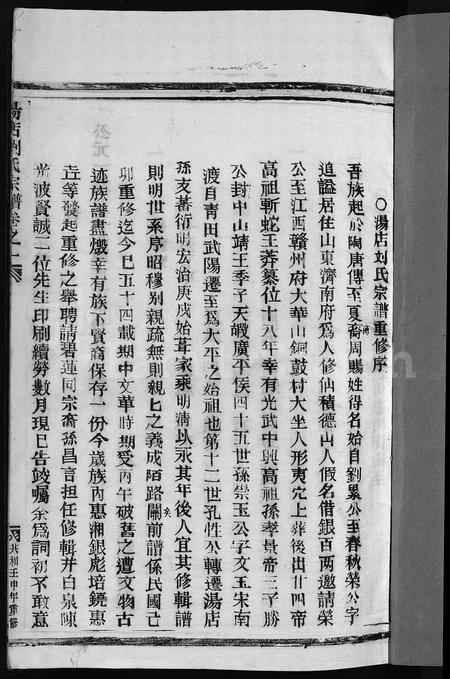 ○湯店刘氏宗譜重修序
吾族起於陶唐傳至夏裔周賜姓得名始自劉累公至春秋榮公字
追謚居住山東濟南府為人修仙積德山人假名借銀百两邀請榮
公至江西赣州府大華山銅鼓村大坐人形夷穴上葬後出廿四帝
高祖斬蛇王莽篡位十八年幸有光武中興高祖孫孝景帝三子勝
公封中山靖王季子天嘏廣平侯四十五世孫崇玉公字文玉宋南
渡自青田武陽遷至為大平之始祖也第十二世孔性公轉遷湯店
孫支蕃衍明宏治庚戌始葺家乘明清以永其年後人宜其修輯譜
則明世系序昭穆别親疏無則親匕之義成陌路矣關前譜係民國己
卯重修迄今巳五十四載期中文華時期受丙午破舊之遭文物古
迹族譜盡燬幸有族下賢裔保存一份今歲族內惠湘銀彪培鐃惠
壵等發起重修之舉聘請碧蓮同宗裔孫昌言担任修輯并白泉陳
光波賢誠二位先生印刷續勞數月現巳告竣囑余為詞初不敢意
湯店刘氏宗譜卷之一
共和壬申年重修